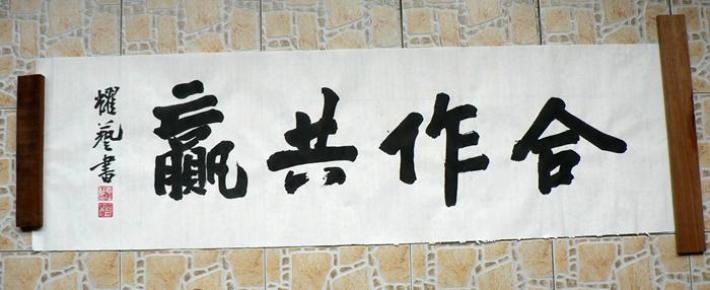 合作共赢
耀艺書